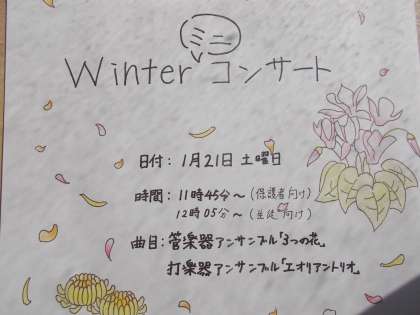 Winter ミニ コンサート
日付： 1月21日 土曜日
時間： 11時45分～（保護者向け）
12時05分～（生徒向け）
曲目： 管楽器アンサンブル「3つの花」
打楽器アンサンブル「エオリアントリオ」